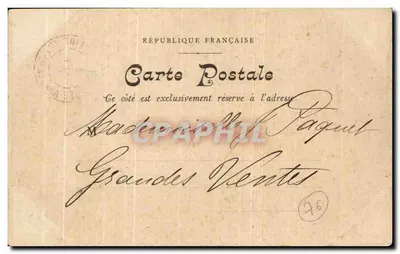 RÉPUBLIQUE FRANÇAISE
Carte Postale
Ce côté est exclusivement réservé à l'adresse
Mademoiselle Paquet
CPAPHIL
Grandes Ventes
76